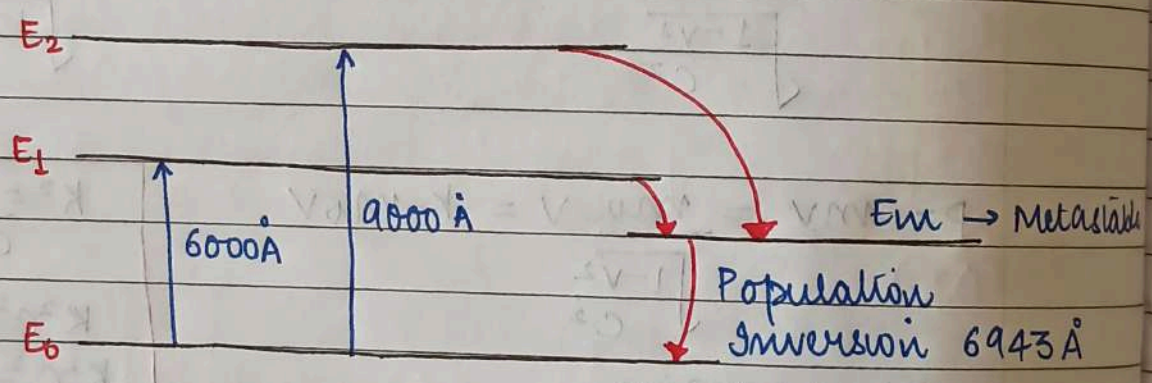 E₂
E₁
6000Å
9000 Å
Em → Metastable
Population
Inversion 6943Å
E₀